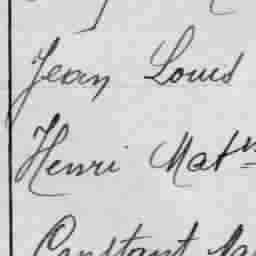 Jean Louis
Henri Mat
Constant